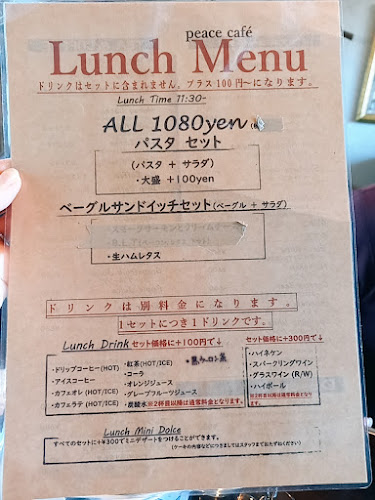 peace café
Lunch Menu
ドリンクはセットに含まれません。プラス100円〜になります。
Lunch Time 11:30~
ALL 1080yen
パスタ セット
(パスタ + サラダ)
・大盛 +100yen
ベーグルサンドイッチセット(ベーグル + サラダ)
・生ハムレタス
ドリンクは別料金になります。
1セットにつき1ドリンクです。
Lunch Drink セット価格に+100円で↓
・ドリップコーヒー(HOT)
・アイスコーヒー
・カフェオレ (HOT/ICE)
・カフェラテ (HOT/ICE)
・紅茶(HOT/ICE)
・コーラ
・オレンジジュース
・グレープフルーツジュース
・炭酸水※2杯目以降は通常料金となります。
セット価格に+300円で↓
・ハイネケン
・スパークリングワイン
・グラスワイン (R/W)
・ハイボール
※2杯目以降は通常料金となります。
Lunch Mini Dolce
すべてのセットに+¥300でミニデザートをつけることができます。
(ケーキの内容などにつきましてはスタッフまでおたずねください)